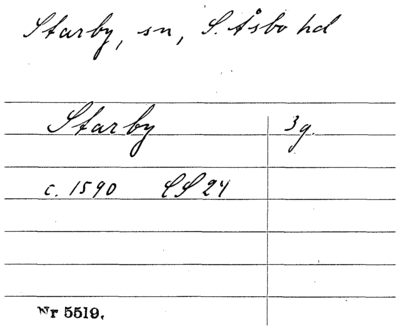 Starby, sn, S. Åsbo hd
Starby 3 g.
c. 1590 LS 24
Nr 5519.